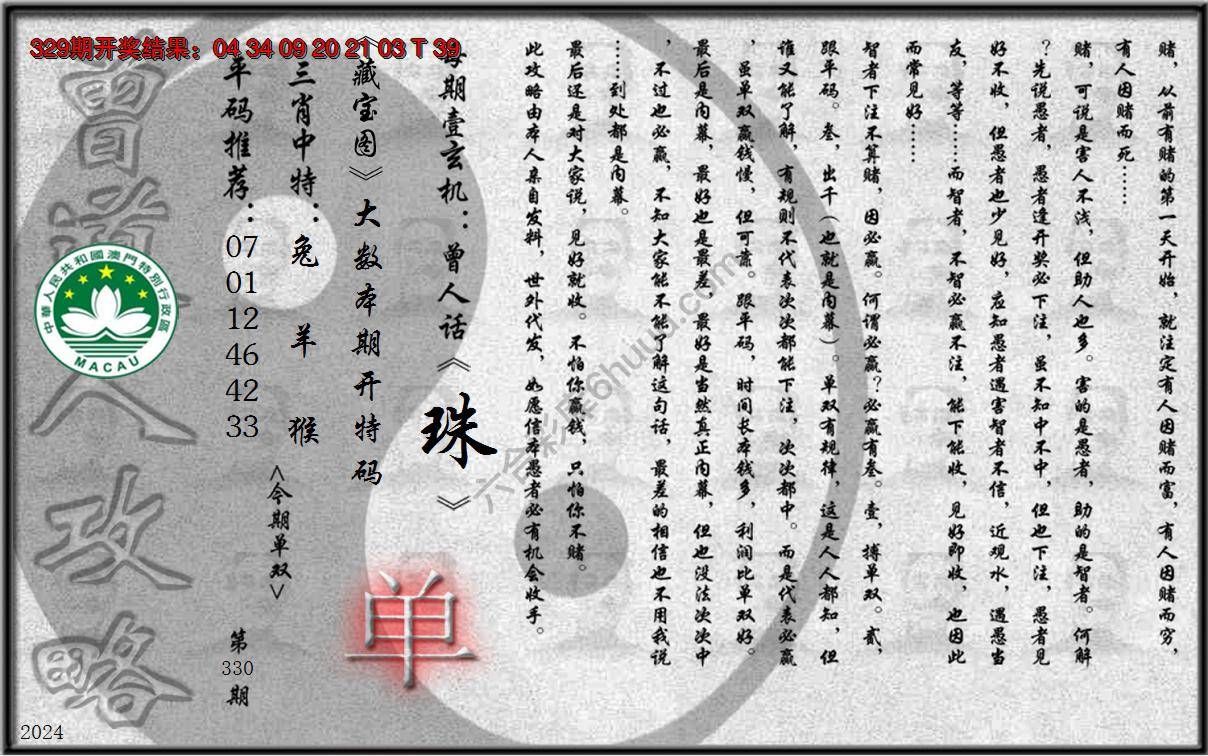 329期开奖结果：04 34 09 20 21 03 T 39
赌，从前有赌的第一天开始，就注定有人因赌而富，有人因赌而穷，
有人因赌而死……
赌，可说是害人不浅，但助人也多。害的是愚者，助的是智者。何解
？先说愚者，愚者逢开奖必下注，虽不知中不中，但也下注，愚者见
好不收，但愚者也少见好，应知愚者遇害智者不信，近观水，遇愚当
友，等等……而智者，不智必赢不注，能下能收，见好即收，也因此
而常见好……
智者下注不算赌，因必赢。何谓必赢？必赢有叁。壹，搏单双。贰，
跟平码。叁，出千（也就是内幕）。单双有规律，这是人人都知，但
谁又能了解，有规则不代表次次都能下注，次次都中。而是代表必赢
，虽单双赢钱慢，但可靠。跟平码，时间长本钱多，利润比单双好。
最后是内幕，最好也是最差，最好是当然真正内幕，但也没法次次中
，不过也必赢，不知大家能不能了解这句话，最差的相信也不用我说
……到处都是内幕。
最后还是对大家说，见好就收。不怕你赢钱，只怕你不赌。
此攻略由本人亲自发料，世外代发，如愿信本愚者必有机会收手。
每期壹玄机：曾人话《珠》
《藏宝图》大数本期开特码
单
三肖中特：兔 羊 猴
<今期单双>
平码推荐：07 01 12 46 42 33
第330期
曾道人攻略
中華人民共和國澳門特別行政區
MACAU
2024
六合彩库6huuu.com